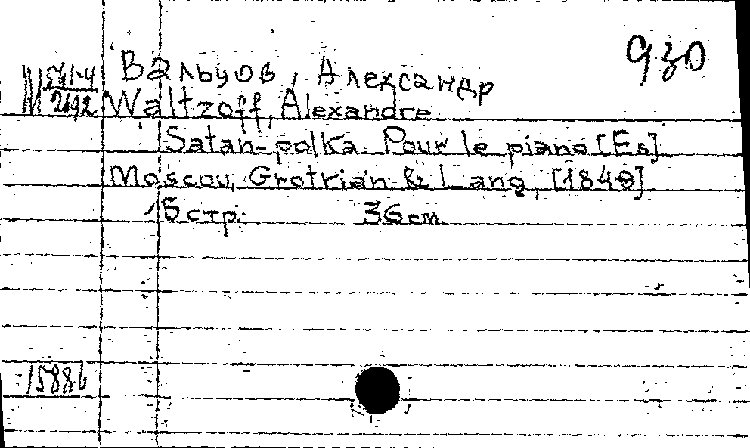 930
Вальцов, Александр
Waltzoff, Alexandre
Satan-polka. Pour le piano [Es]
Moscou, Grotrian & Lang, [1840]
15 стр. 36 cm
15886